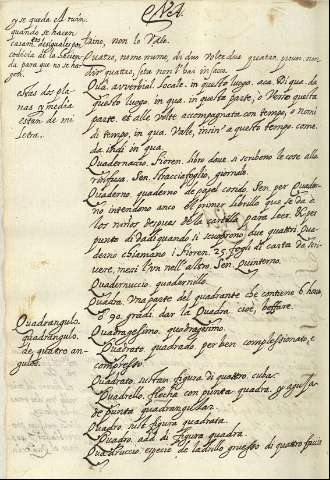 QVA.
y se queda A ruin.
quando se hacen
casam.tos desiguales por
codicia de la hacien
da para que no se ha
gan.
estas dos pla
nas y media
estan de mi
letra.
taino, non lo vale.
Quattro, nome nume. di due volte due quatro, prou. non
dir quattro, se ta non l'hai in sacco.
Qua. auverbial. locale. in questo luogo. aca. Di qua. da
questo luogo. in qua. in questa parte, o verso questa
parte. et alle volte accompagnata con tempo, o nomi
di tempo, in qua. Valle, insin' a questo tempo. come
da indi in qua.
Quadernaccio. Fioren. libro dove si scribeno le cose alla
rinfusa. Sen. stracciafoglio, giornale.
Quaderno quaderno de papel cosido. Sen. per Quader
no intendono anco el primer librillo que se da à
los niños despues de la cartilla para leer. Per
punto di dadi quando si scuoprono due quattri. Qua
derno chiamano i Fioren. 25 fogli di carta da scri
vere, messi l'un nell'altro. Sen. quinterno.
Quadernuccio. quadernillo.
Quadra. Una parte del quadrante che contiene 6 hore,
o 90 gradi. dar la Quadra. cioè, beffare.
Quadragessimo. quadragesimo.
Quadrato. quadrado. per ben complessionato, e
compresso.
Quadrato. sustan. figura di quattro. cuba.
Quadrello. flecha con punta quadra. aguja
de punta quadrangular.
Quadro. sust. figura quadrata.
Quadro. add. di figura quadra.
Quadruccio. especie de ladrillo gruesso di quattro faccie
Quadrangulo.
quadrangulo.
de quatro an
gulos.